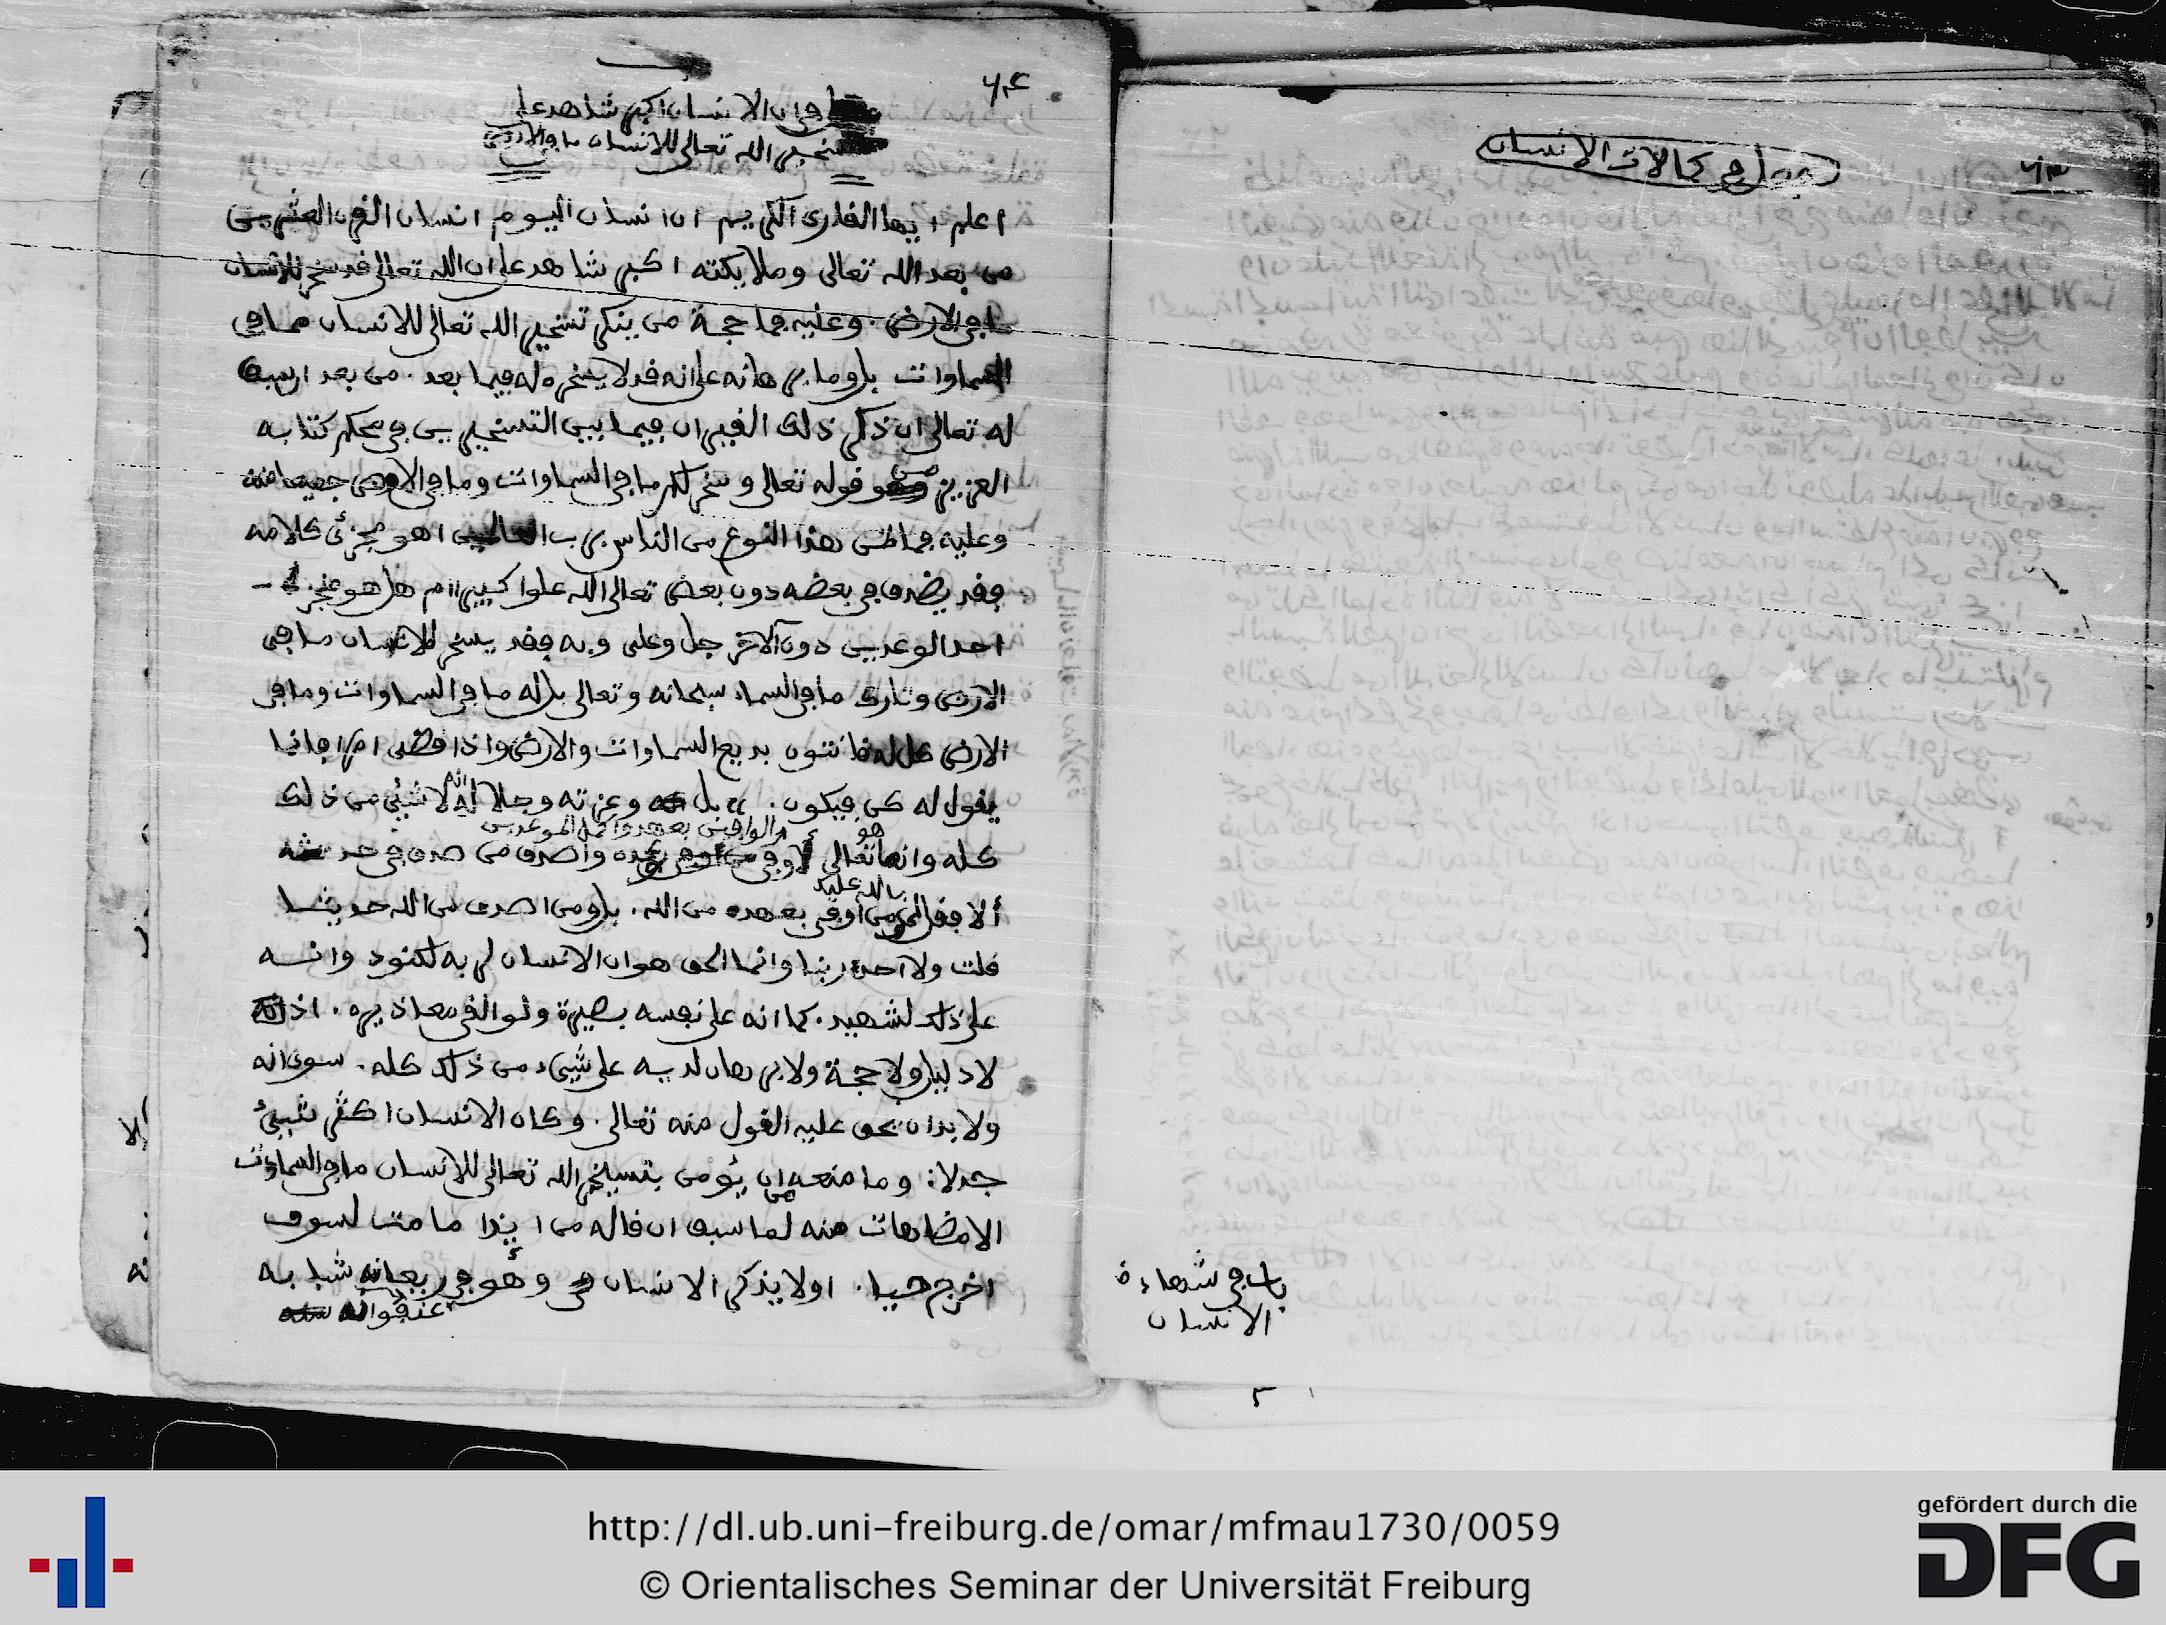 ٦٣
فصل في كمالات الانسان
باب في شهادة
الانسان
٦٤
باب
في ان الانسان اكبر شاهد على
تسخير الله تعالى للانسان ما في الارض
اعلم ايها القارئ الكريم ان انسان اليوم انسان القرن العشرين
من بعد الله تعالى وملايكته اكبر شاهد على ان الله تعالى قد سخر للانسان
ما في الارض. وعليه فما حجة من ينكر تسخير الله تعالى للانسان مما في
السماوات بل وما برهانه على انه قد لا يسخره له فيما بعد. من بعد ان سبق
له تعالى ان ذكر ذلك القبيل ان فيما بين التسخيرين في محكم كتابه
العزيز في قوله تعالى وسخر لكم ما في السماوات وما في الارض جميعا منه
وعليه فما ظن هذا النوع من الناس برب العالمين اهو مجزئ كلامه
فقد يصدق في بعضه دون بعض تعالى الله علوا كبيرا ام هل هو منجز له
احد الوعدين دون الآخر جل وعلى وبه فقد يسخر للانسان ما في
الارض وتارك ما في السماء سبحانه وتعالى بل له ما في السماوات وما في
الارض كل له قانتون بديع السماوات والارض واذا قضى امرا فانما
يقول له كن فيكون. بل وعزته وجلاله انه لا شيئ من ذلك
والوافين بعهد
كله وانما هو تعالى واصدق من صدق في حد
بالله عليك
ألا فقل لي من أوفى بعهده من الله. بل ومن اصدق من الله حديثا
قلت ولا احد ربنا وانما الحق هو ان الانسان لربه لكنود وانه
على ذلك لشهيد. كما انه على نفسه بصيرة ولو القى معاذيره. اذ انه
لا دليل ولا حجة ولا برهان لديه على شيء من ذلك كله. سوى انه
ولا بد ان يحق عليه القول منه تعالى. وكان الانسان اكثر شيئ
جدلا: وما منعه ان يؤمن بتسخير الله تعالى للانسان ما في السماوات
الا منه لما سبق ان قاله من ائذا ما مت لسوف
اخرج حيا. اولا يذكر الانسان وهو في ريعانه شبابه
عنفوانه
http://dl.ub.uni-freiburg.de/omar/mfmau1730/0059
© Orientalisches Seminar der Universität Freiburg
gefördert durch die
DFG